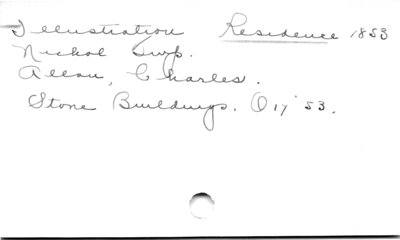 Illustration Residence 1853
Nichol Twp.
Allan, Charles.
Stone Buildings. O 17 '53.